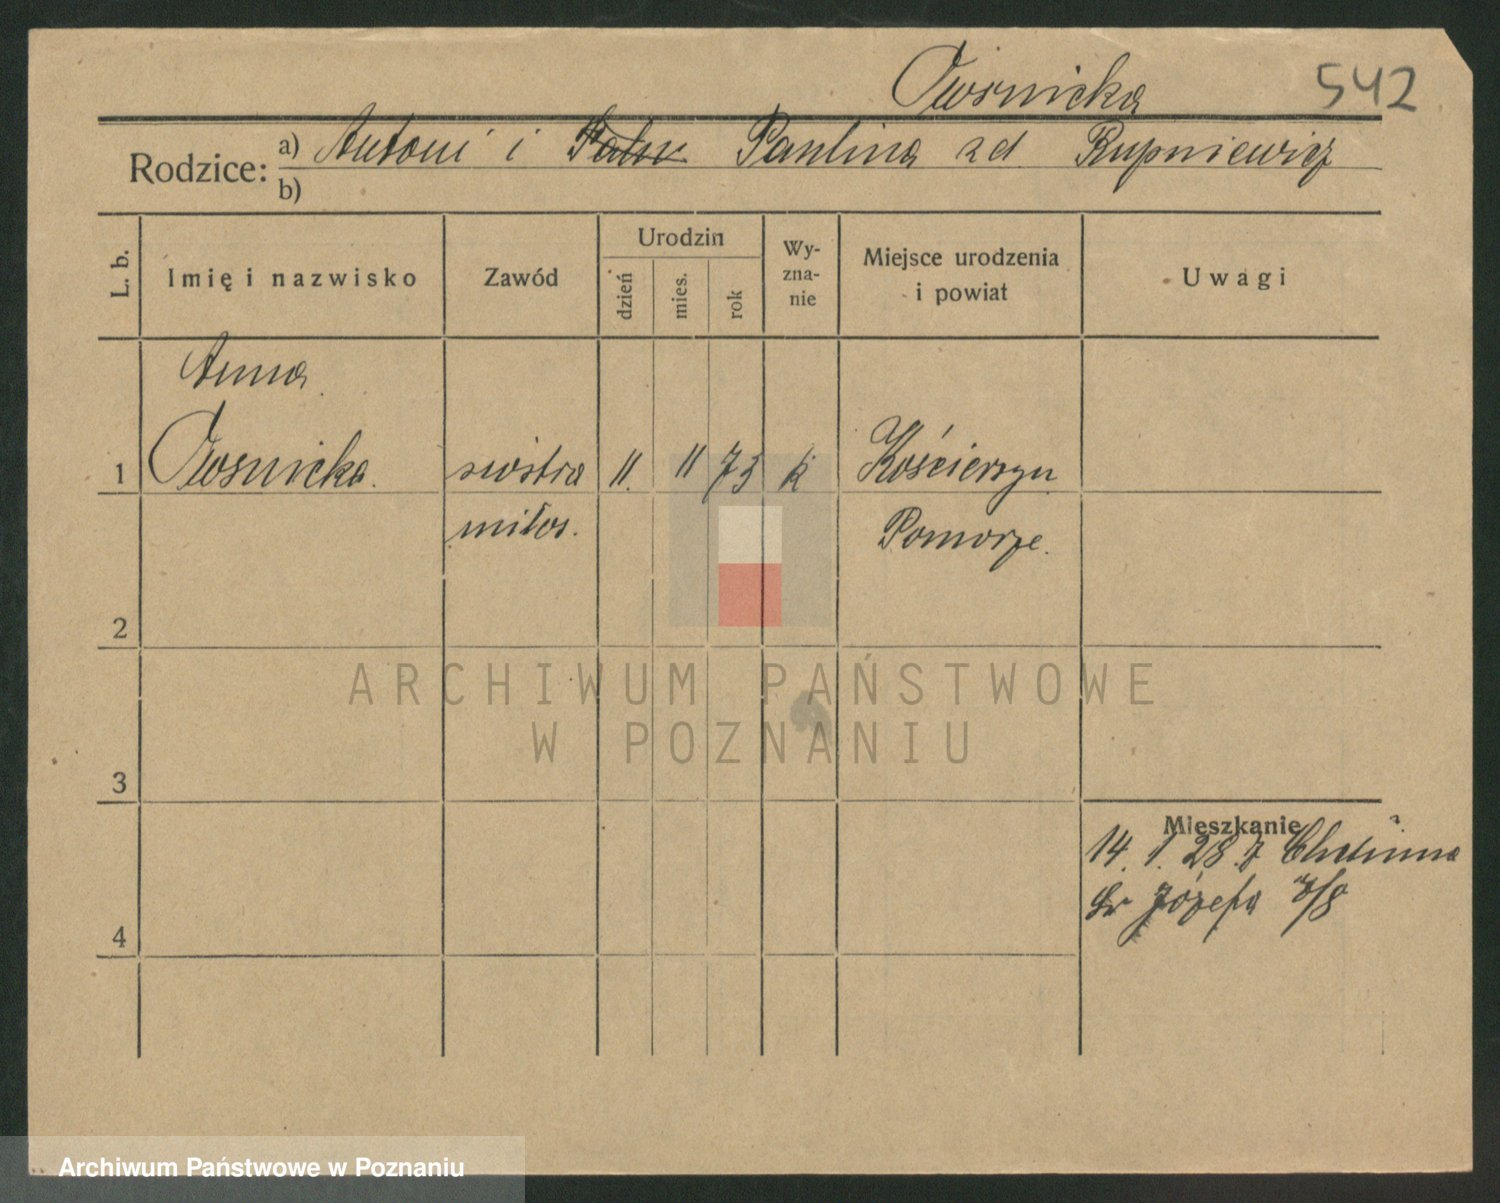 Owsnicka 542
Rodzice: a) Antoni i Paulina zd Rupniewicz
b)
L. b. Imię i nazwisko Zawód Urodzin dzień mies. rok Wy-zna-nie Miejsce urodzenia i powiat Uwagi
Anna
1 Owsnicka. siostra 11. 11 73 k Kościerzyn
miłos. Pomorze.
2
ARCHIWUM PAŃSTWOWE
W POZNANIU
3
Mieszkanie
14. 1. 28. z Chełmna
4 św Józefa 7/8
Archiwum Państwowe w Poznaniu